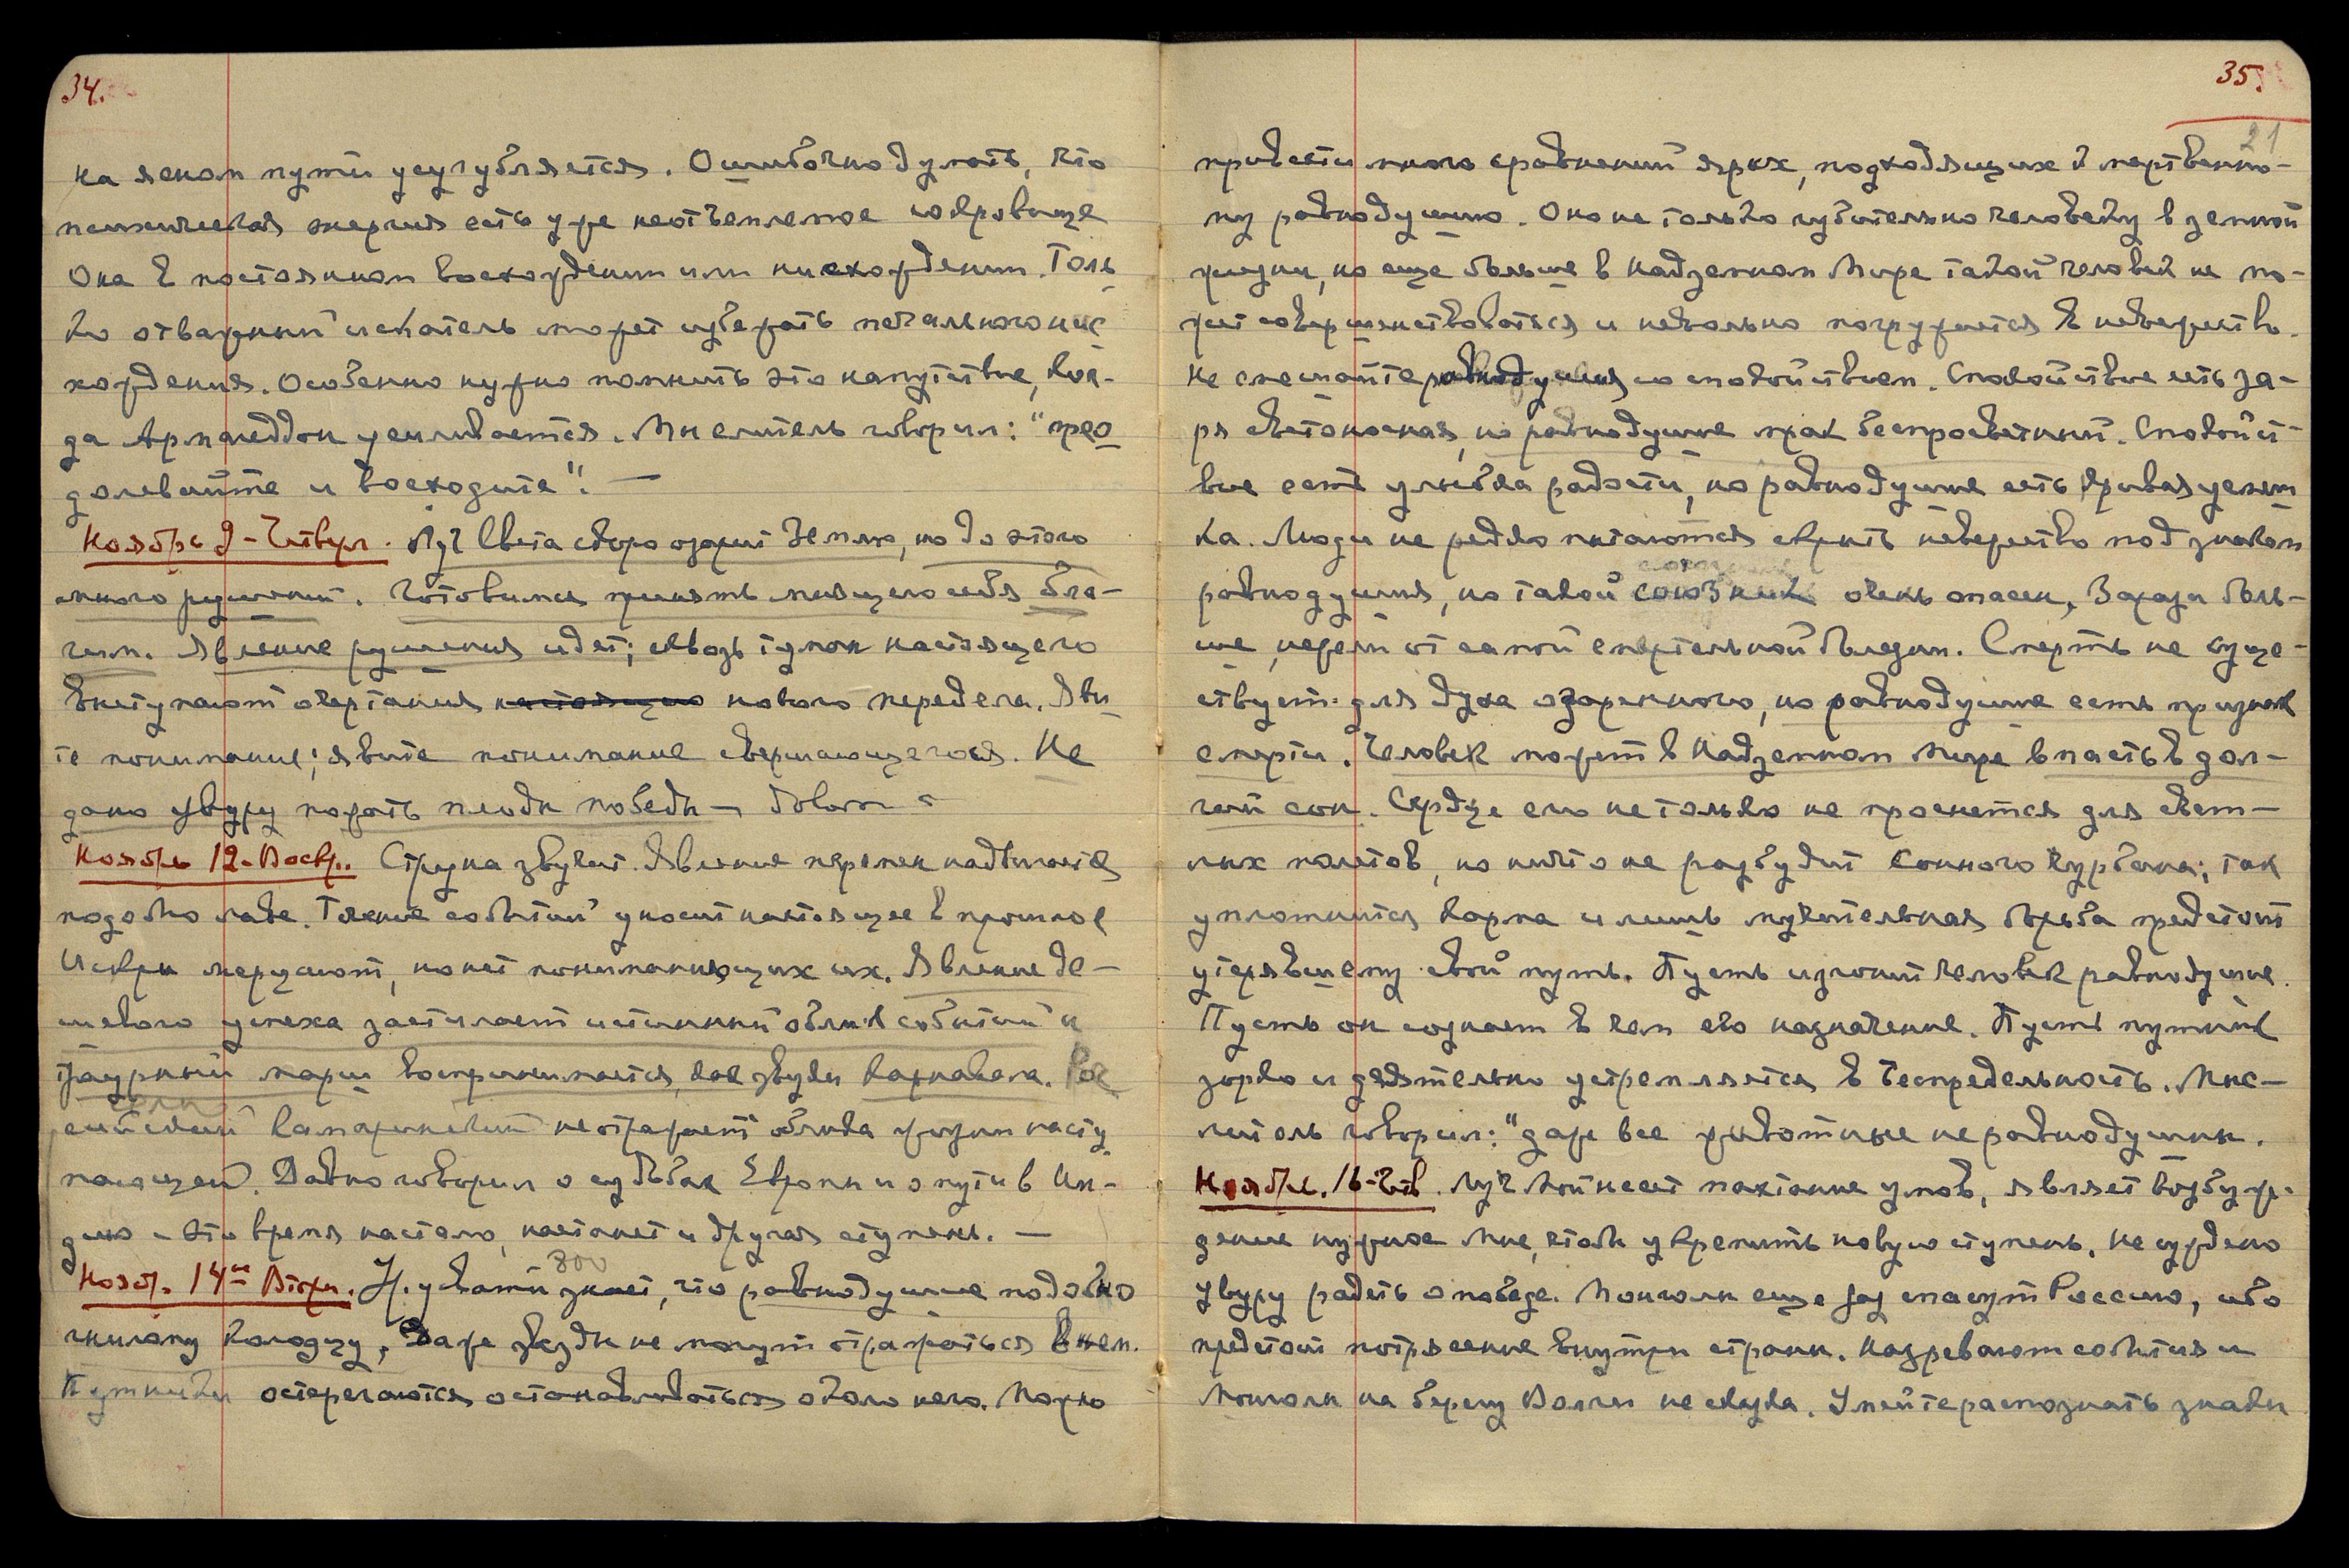 34.
на яеном пути усугубляется. Ошибочно думать, что
психическая энергия есть уже неотъемлемое сокровище
Она в постоянном восхождении или нисхождении. Толь
ко отважный искатель может избежать печального нис
хождения. Особенно нужно помнить это напутствие, ког-
да Армагеддон усиливается. Мыслитель говорил: "прео
долевайте и восходите". —
Ноябрь 9 - Четверг. Луч Света скоро озарит Землю, но до этого
много решений. Готовимся принять мнящего себя
Явление рушения идет; сквозь туман настоящего
выступают очертания настоящего нового передела. Яви
те понимание; явите понимание свершающегося. Не
дано Увуру пожать плоды победы —
Ноябрь 12 - Воскр. Струна звучит. Явление перемен надвигается
подобно лаве. Течение событий уносит настоящее в прошлое
Искры мерцают, но нет понимающих их. Явление де-
шевого успеха застилает истинный облик событий и
траурный марш воспринимается, как звуки карнавала.
не отражает облика жизни насту
пающей. Давно говорил о судьбах Европы и о пути в Ин-
дию - это время настало, настанет и другая ступень. —
Нояб. 14ое Вторн. Урувати знает, что равнодушие подобно
800
гнилому колодцу, Даже звезды не могут отражаться в нем.
Путники остерегаются останавливаться около него. Можно
35.
21
привести много сравнений ярких, подходящих к мертвенно-
му равнодушию. Оно не только губительно человеку в земной
жизни, но еще больше в Надземном Мире такой человек не мо-
жет совершенствоваться и невольно погружается в невежество.
Не смешайте равнодушия со спокойствием. Спокойствие есть за-
ря светоносная, но равнодушие мрак беспросветный. Спокойст-
вие есть улыбка радости, но равнодушие есть кривая усмеш
ка. Люди не редко пытаются скрыть невежество под знаком
равнодушия, но такой союзник очень опасен, Заразы боль-
ше, нежели от самой смертельной болезни. Смерть не суще-
ствует для духа озаренного, но равнодушие есть признак
смерти. Человек может в Надземном Мире впасть в дол-
гий сон. Сердце его не только не проснется для свет-
лых полетов, но ничто не разбудит сонного чурбана; так
уплотнится карма и лишь мучительная борьба предстоит
утерявшему свой путь. Пусть изгонит человек равнодушие.
Пусть он сознает в чем его назначение. Пусть путник
зорко и деятельно устремляется в Беспредельность. Мыс-
литель говорил: "даже все животные не равнодушны.
Ноябрь. 16 - Четв. Луч Мой несет пахтание умов, являет возбуж-
дение нужное Мне, чтобы укрепить новую ступень. Не суждено
Увуру радеть о победе. Монголы еще раз спасут Россию, ибо
предстоит потрясение внутри страны. Назревают события и
Монголы на берегу Волги не сказка. Умейте распознать знаки